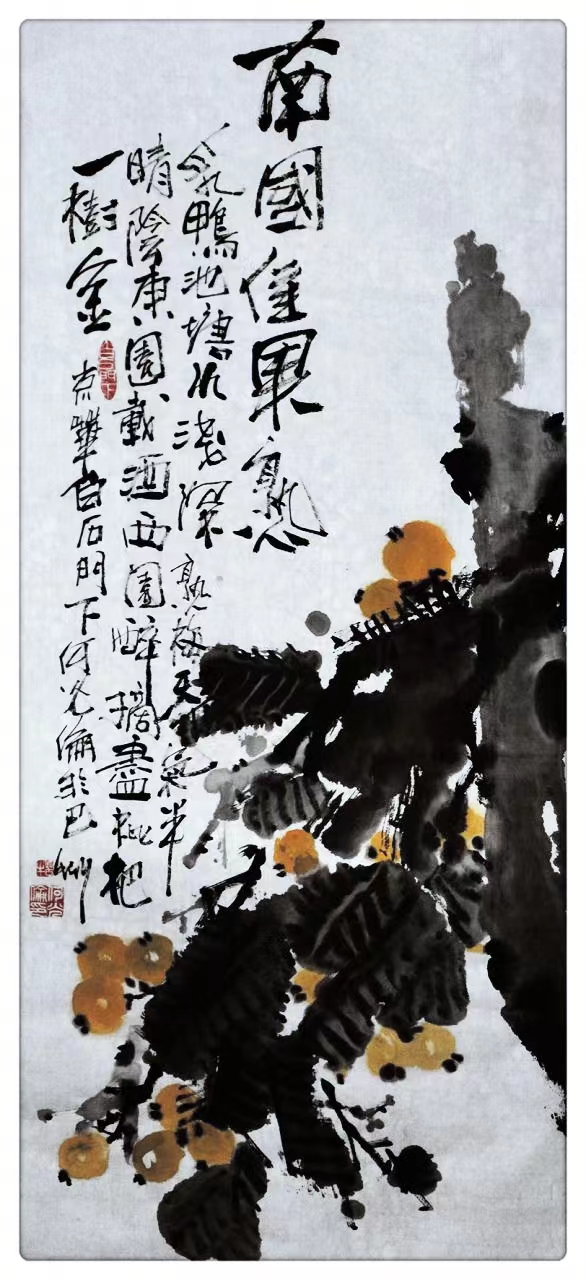 南國佳果熟
乳鴨池塘水淺深熟梅天氣半
晴陰東園載酒西園醉摘盡枇把
一樹金
京華白石門下何光於巴